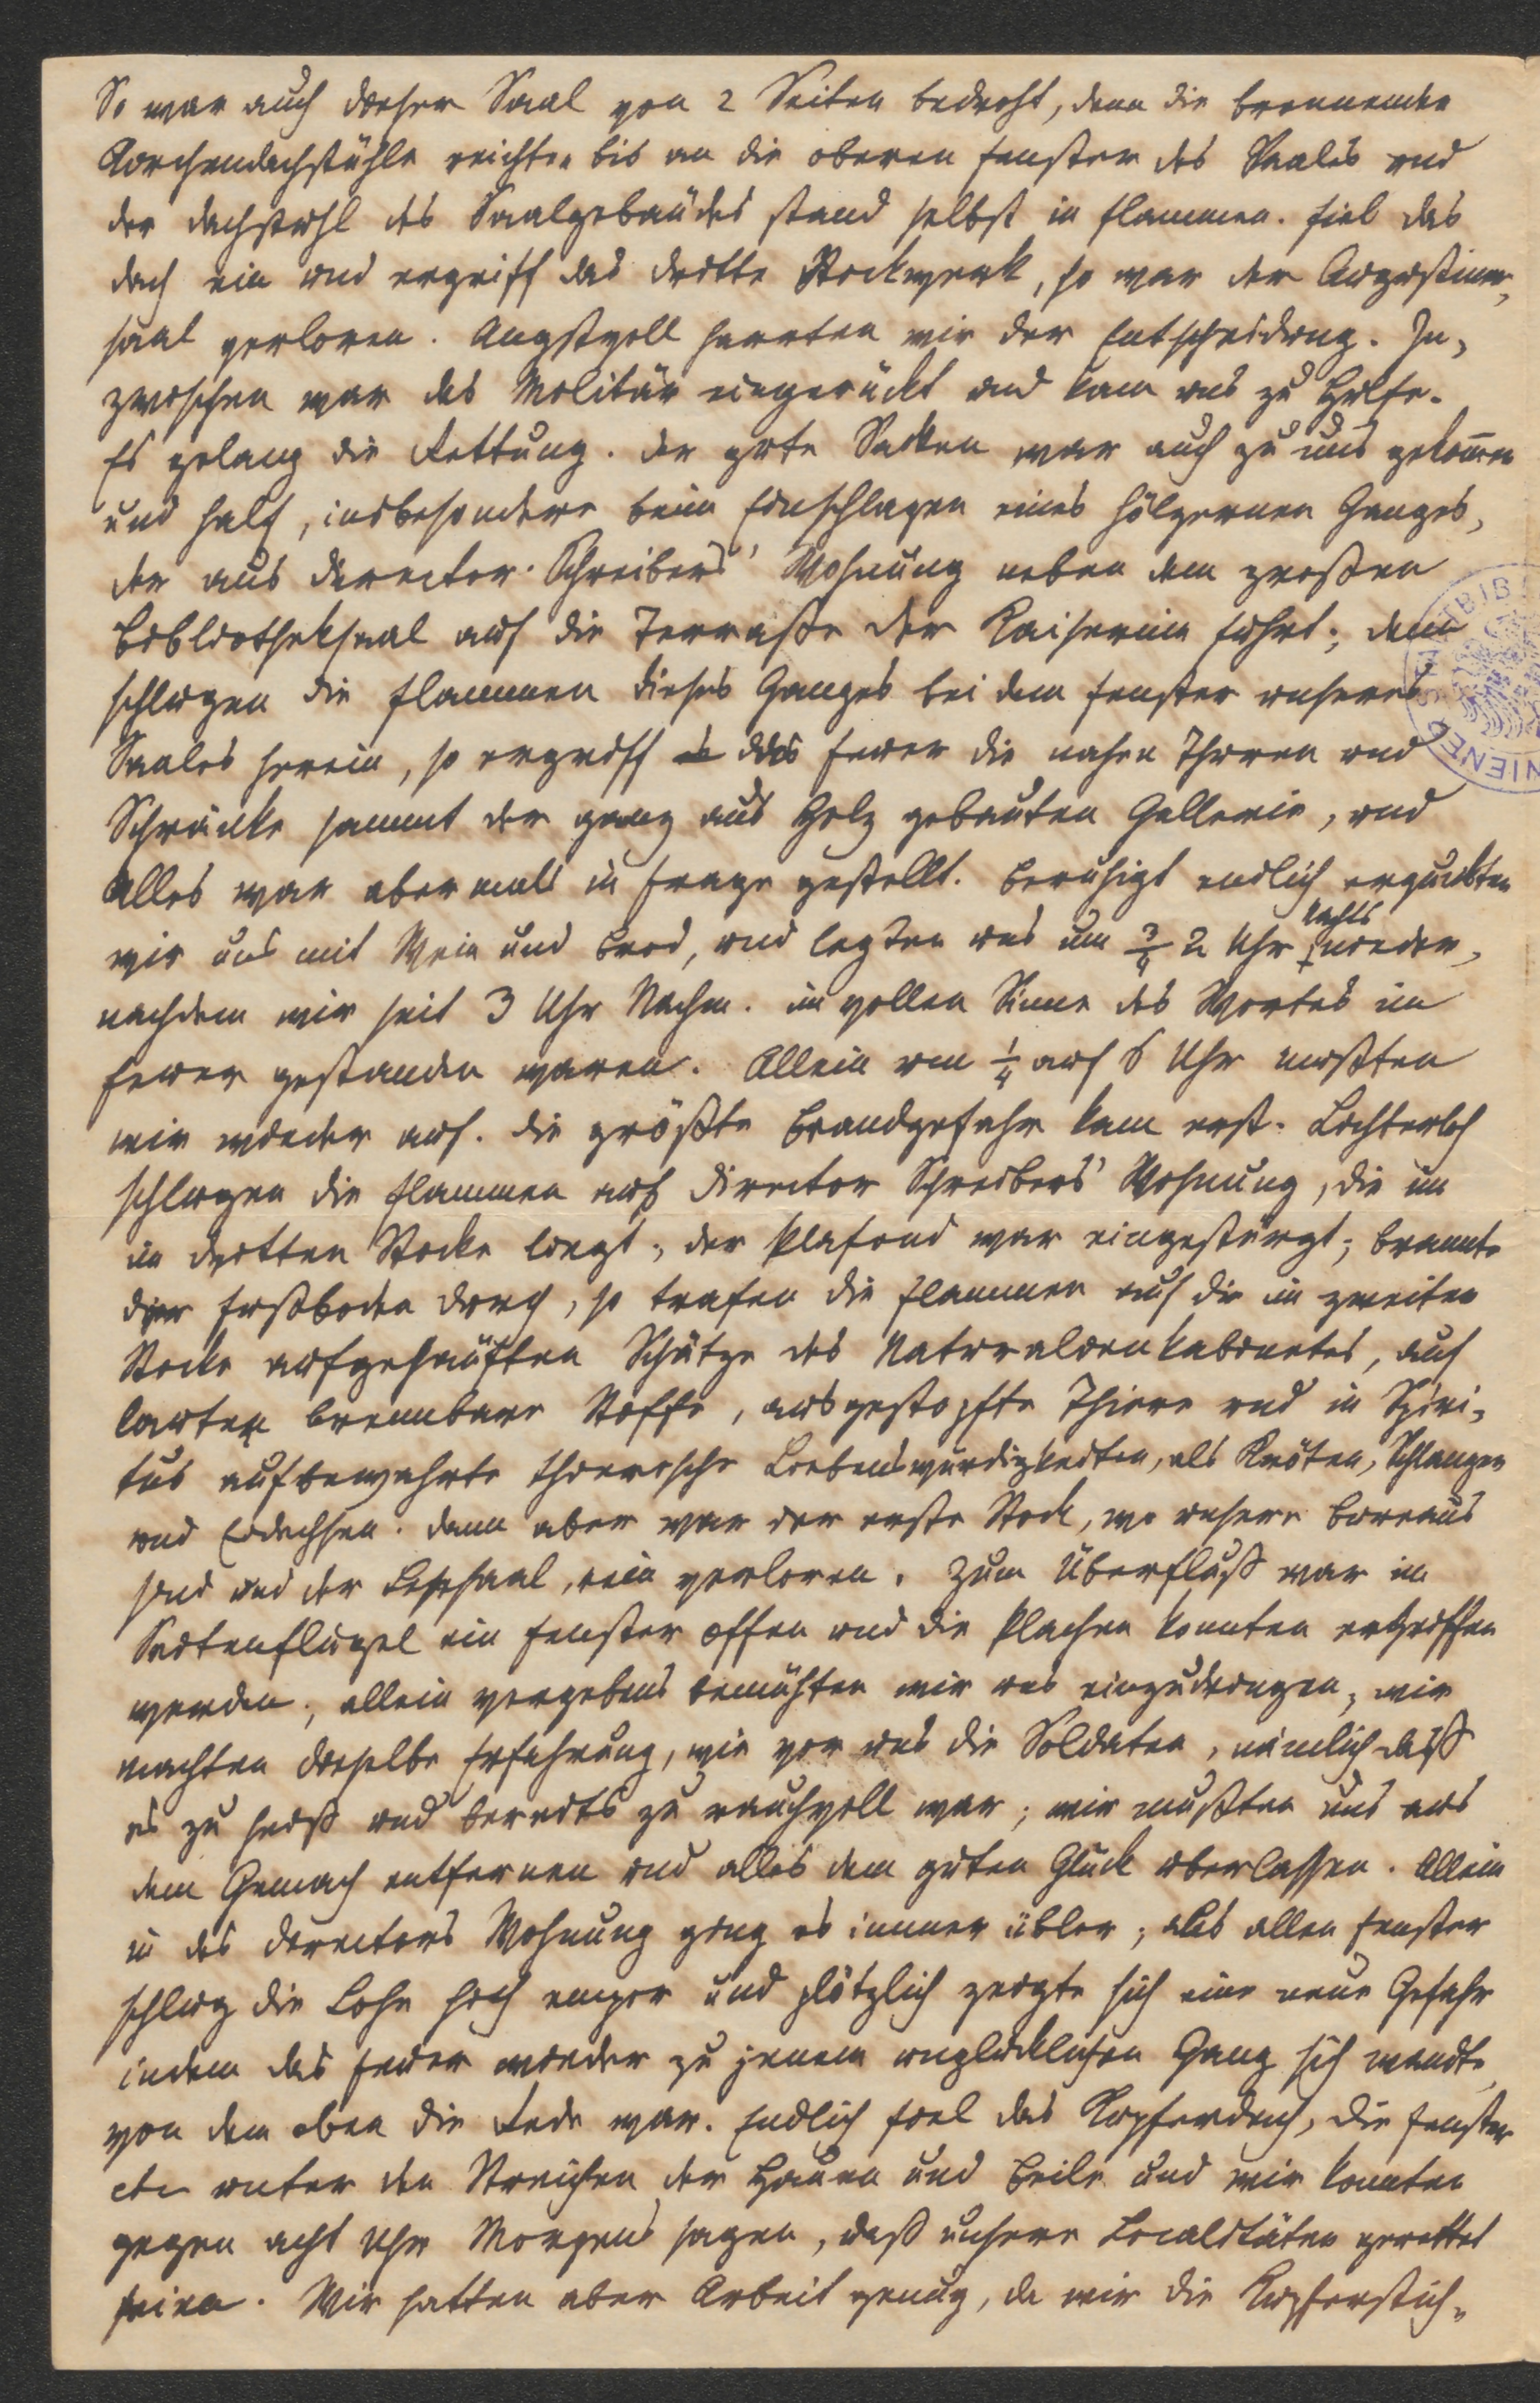 So war auch dieser Saal von 2 Seiten bedroht, denn die brennenden
Kirchendachstühle reichten bis an die oberen Fenster des Saales und
der Dachstuhl des Saalgebäudes stand selbst in Flammen. Fiel das
Dach ein und ergriff das dritte Stockwerk, so war der Augustiner-
saal verloren. Angstvoll harrten wir der Entscheidung. In-
zwischen war das Militär eingerückt und kam uns zu Hülfe.
Es gelang die Rettung. Der gute Sacken war auch zu uns gekom̅en
und half, insbesondere beim Einschlagen eines hölzernen Ganges,
der aus Director Schreibers' Wohnung neben dem großen
Bibliotheksaal auf die Terrasse der Kaiserinn führt; denn
schlugen die Flammen dieses Ganges bei dem Fenster unseres
Saales herein, so ergriff das Feuer die nahen Thüren und
Schränke sammt der ganz aus Holz gebauten Gallerie, und
Alles war abermals in Frage gestellt. Beruhigt endlich erquickten
wir uns mit Wein und Brod, und legten uns um ¾ 2 Uhr Nachts nieder,
nachdem wir seit 3 Uhr Nachm. im vollen Sinne des Wortes im
Feuer gestanden waren. Allein um ¼ auf 6 Uhr mußten
wir wieder auf. Die größte Brandgefahr kam erst. Lichterloh
schlugen die Flammen aus Director Schreibers' Wohnung, die im
im dritten Stocke liegt; der Plafond war eingestürzt; brannte
der Fußboden durch, so trafen die Flammen auf die im zweiten
Stocke aufgehäuften Schätze des Naturalienkabinetes, auf
lauter brennbare Stoffe, ausgestopfte Thiere und in Spiri-
tus aufbewahrte thierische Liebenswürdigkeiten, als Kröten, Schlangen
und Eidechsen. Dann aber war der erste Stock, wo unsere Bureaus
sind und der Lesesaal, rein verloren. Zum Überfluß war im
Seitenflügel ein Fenster offen und die Plachen konnten ergriffen
werden; allein vergebens bemühten wir uns einzudringen; wir
machten dieselbe Erfahrung, wie vor uns die Soldaten, nämlich daß
es zu heiß und bereits zu rauchvoll war; wir mußten uns aus
dem Gemach entfernen und alles dem guten Glück überlassen. Allein
in des Directors Wohnung ging es immer übler; aus allen Fenster
schlug die Lohe hoch empor und plötzlich zeigte sich eine neue Gefahr
indem das Feuer wieder zu jenem unglücklichen Gang sich wandte,
von dem oben die Rede war. Endlich fiel das Kupferdach, die Fenster
etc unter den Streichen der Hauen und Beile und wir konnten
gegen acht Uhr Morgens sagen, daß unsere Localitäten gerettet
seien. Wir hatten aber Arbeit genug, da wir die Kupferstich-